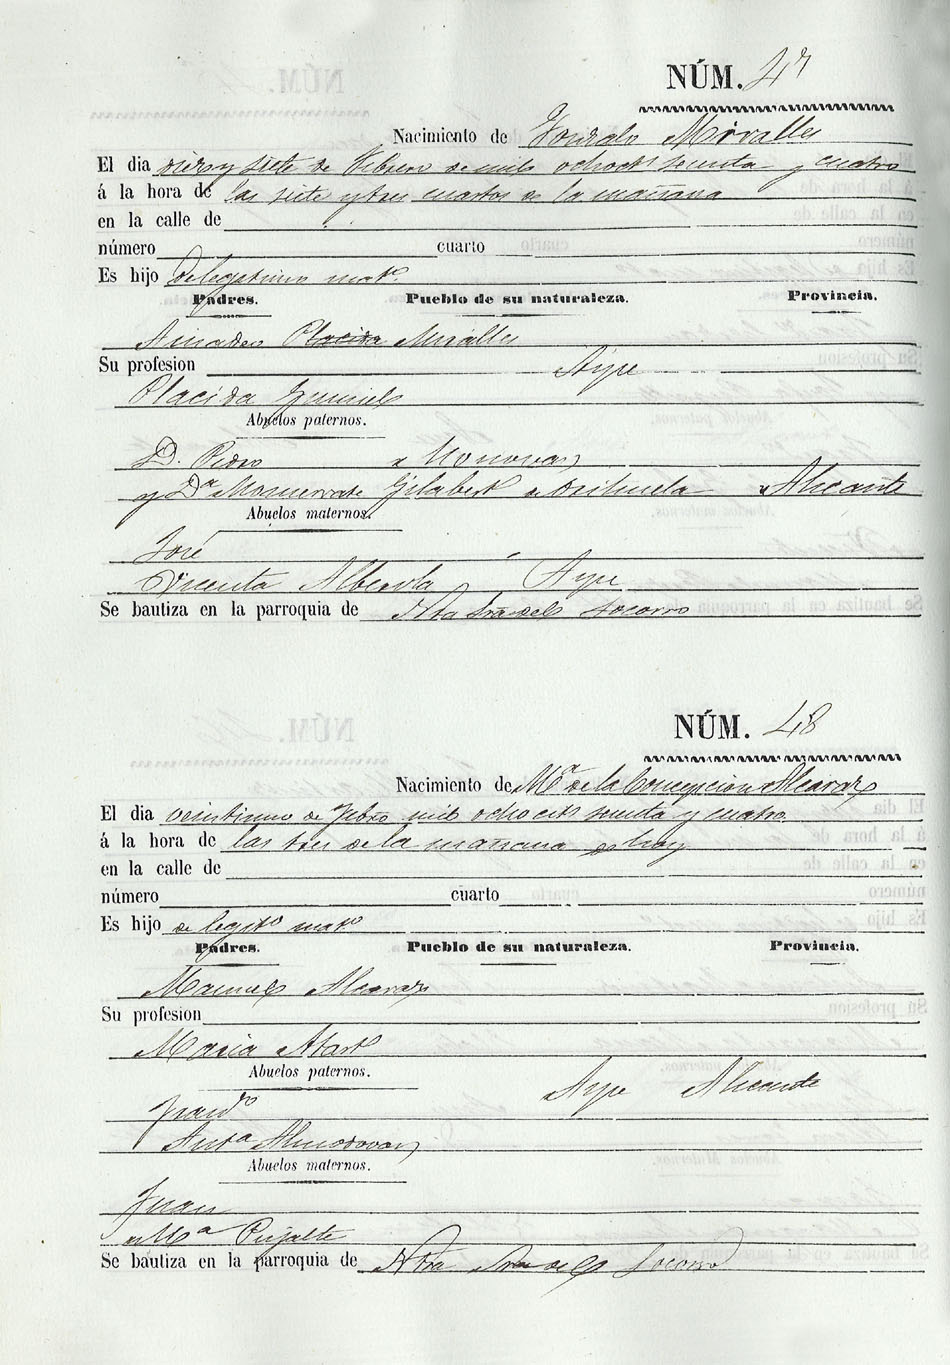 NÚM. 47
Nacimiento de Gonzalo Miralles
El dia diez y siete de Febrero de mil ochocts setenta y cuatro
á la hora de las siete y tres cuartos de la mañana
en la calle de
número cuarto
Es hijo de legitimo mato.
Padres. Pueblo de su naturaleza. Provincia.
Amadeo Placida Miralles
Su profesion Aspe
Placida Gumiel
Abuelos paternos.
D. Pedro de Monovar
y Da. Monserrate Gilabert de Orihuela Alicante
Abuelos maternos.
José
Vicenta Alberola Aspe
Se bautiza en la parroquia de Ntra Sra del Socorro
NÚM. 48
Nacimiento de Ma de la Concepcion Alcaraz
El dia veintiuno de Febro mil ochocts setenta y cuatro
á la hora de las tres de la mañana de hoy
en la calle de
número cuarto
Es hijo de legito mato
Padres. Pueblo de su naturaleza. Provincia.
Manuel Alcaraz
Su profesion
Maria
Abuelos paternos.
Aspe Alicante
Franco
Anta Almodovar
Abuelos maternos.
Juan
Ma Pujalte
Se bautiza en la parroquia de Ntra Sra del Socorro